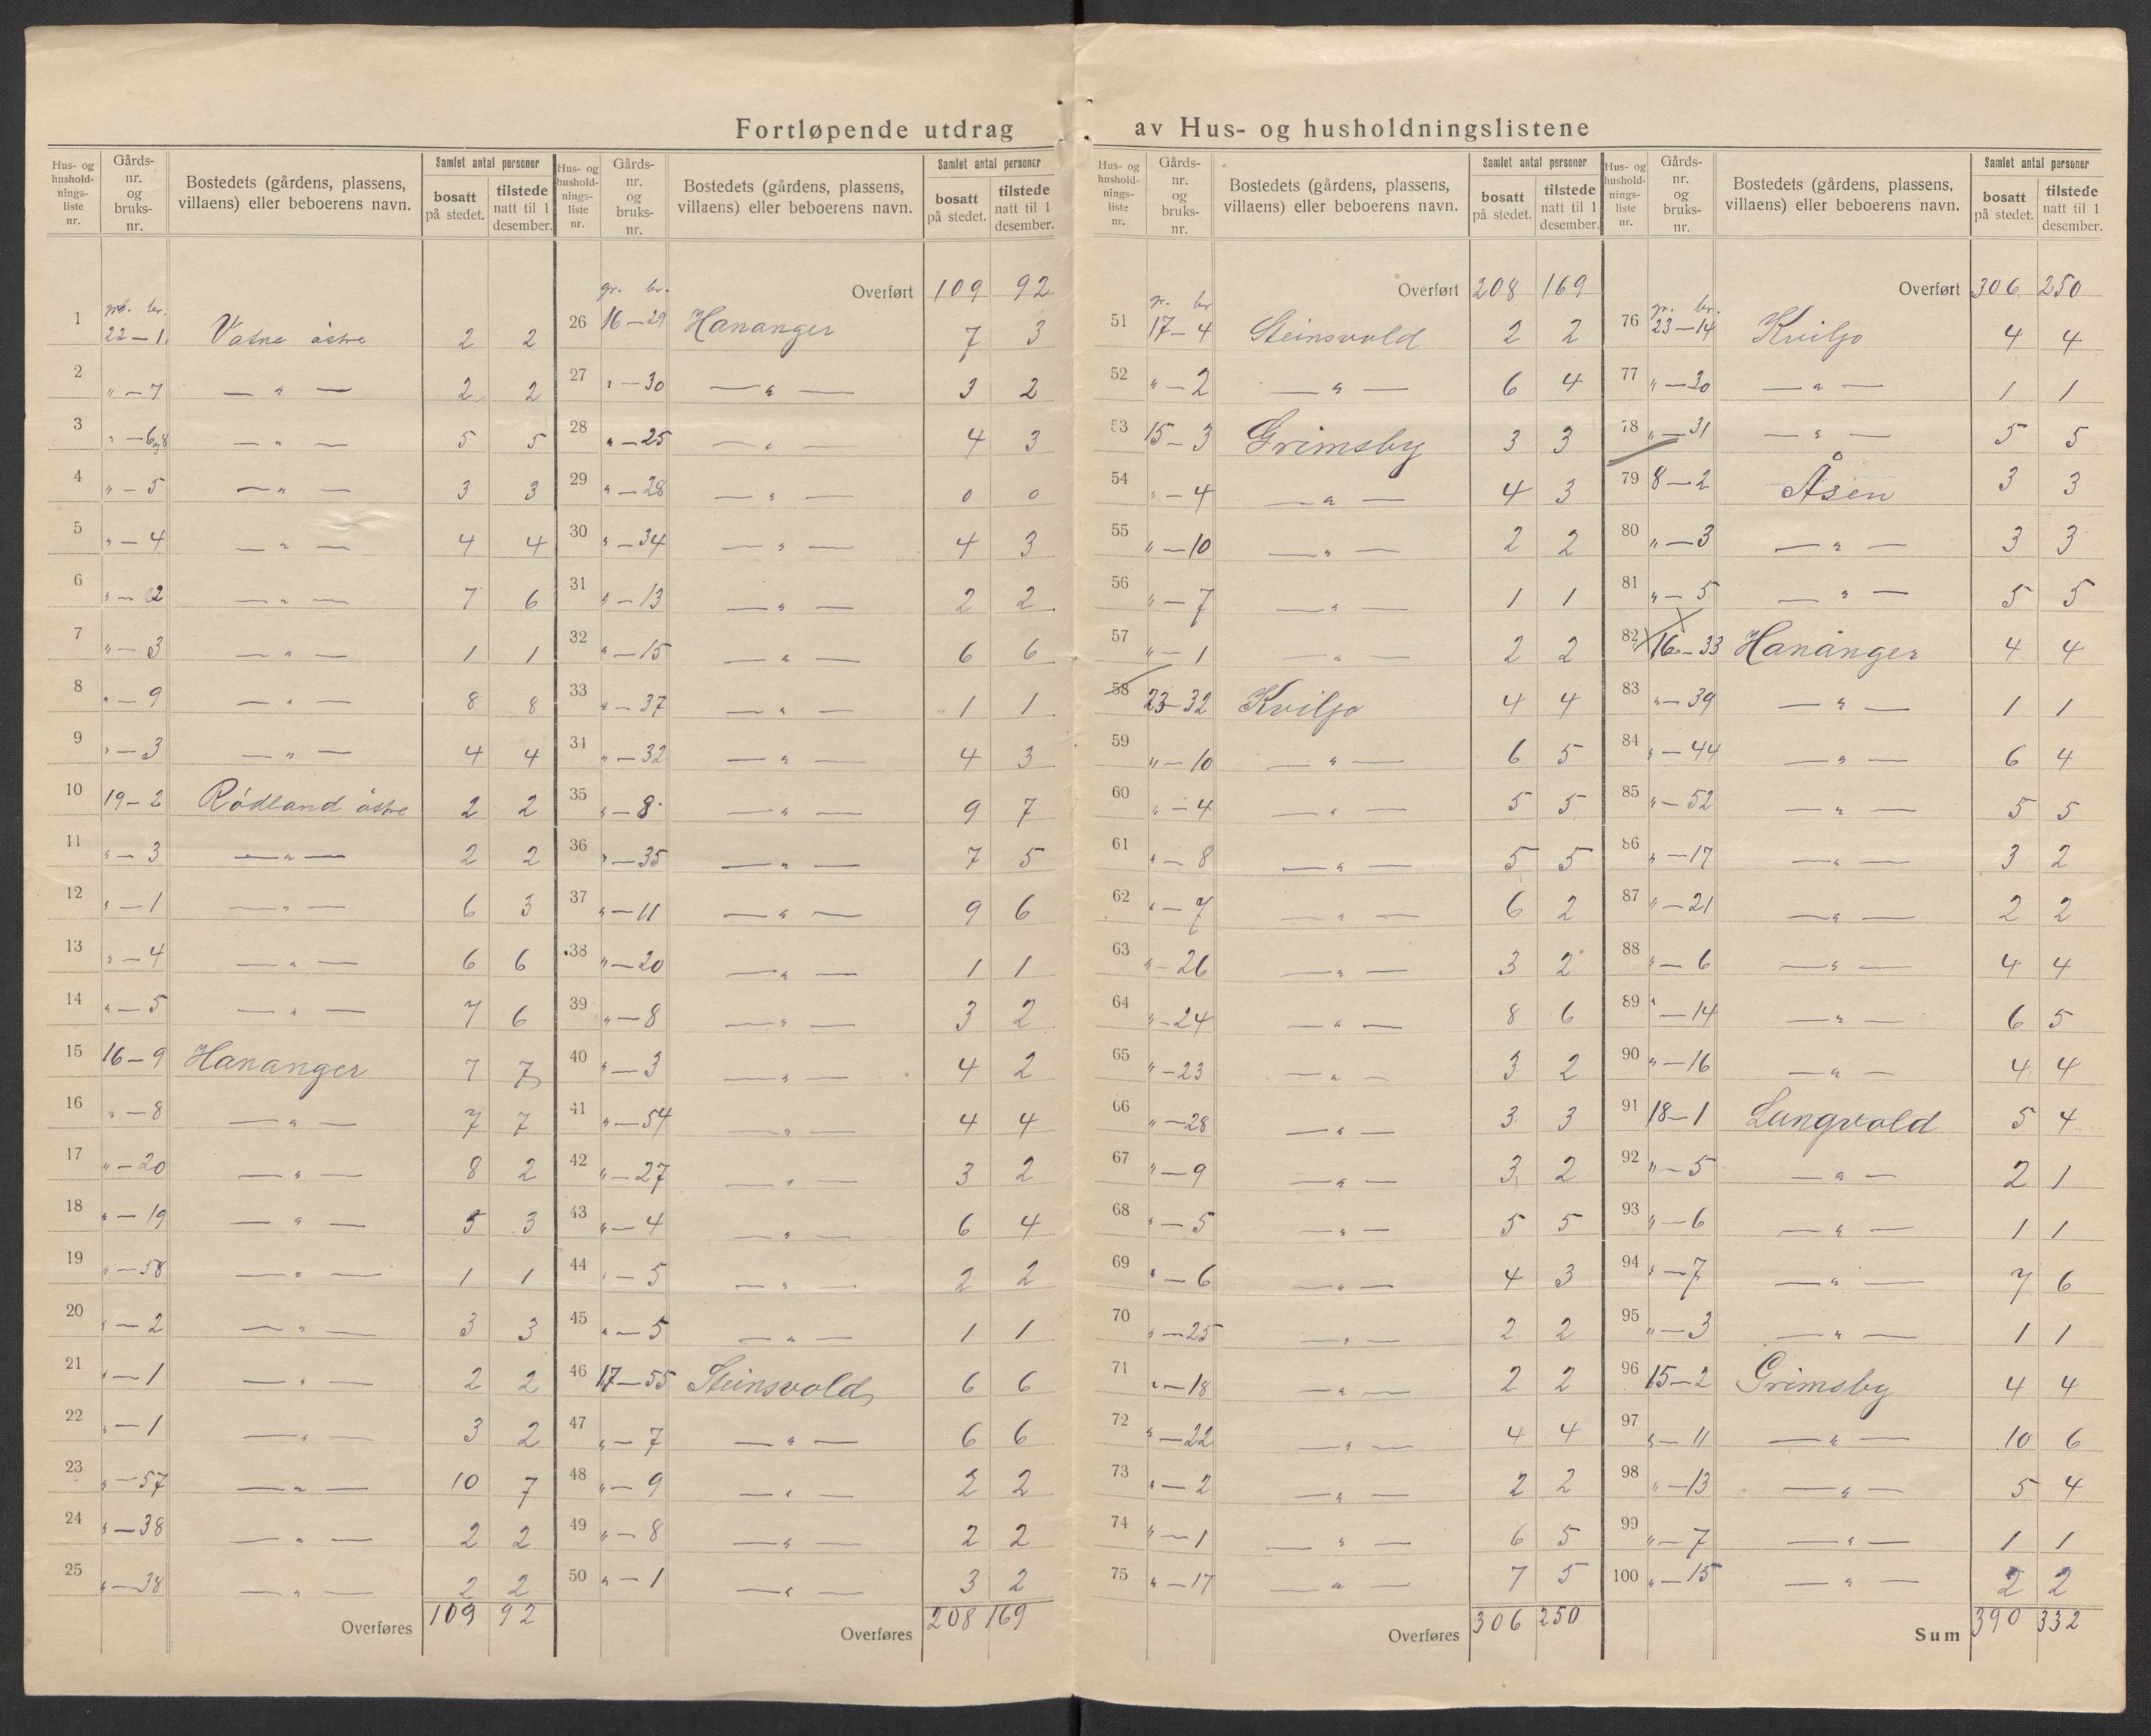 Fortløpende utdrag av Hus- og husholdningslistene
Hus- og husholdnings-liste nr. | Gårds-nr. og bruks-nr. | Bostedets (gårdens, plassens, villaens) eller beboerens navn. | Samlet antal personer bosatt på stedet. | tilstede natt til 1 desember.
gr. br.
1 22 – 1 Vatne östre 2 2
2 " – 7 — " — 2 2
3 " – 6og8 — " — 5 5
4 " – 5 — " — 3 3
5 " – 4 — " — 4 4
6 " – 2 — " — 7 6
7 " – 3 — " — 1 1
8 " – 9 — " — 8 8
9 " – 3 — " — 4 4
10 19 – 2 Rödland östre 2 2
11 " – 3 — " — 2 2
12 " – 1 — " — 6 3
13 " – 4 — " — 6 6
14 " – 5 — " — 7 6
15 16 – 9 Hananger 7 7
16 " – 8 — " — 7 7
17 " – 20 — " — 8 2
18 " – 19 — " — 5 3
19 " – 58 — " — 1 1
20 " – 2 — " — 3 3
21 " – 1 — " — 2 2
22 " – 1 — " — 3 2
23 " – 57 — " — 10 7
24 " – 38 — " — 2 2
25 " – 38 — " — 2 2
Overføres 109 92
Hus- og husholdnings-liste nr. | Gårds-nr. og bruks-nr. | Bostedets (gårdens, plassens, villaens) eller beboerens navn. | Samlet antal personer bosatt på stedet. | tilstede natt til 1 desember.
Overført 109 92
gr. br.
26 16 – 29 Hananger 7 3
27 " – 30 — " — 3 2
28 " – 25 — " — 4 3
29 " – 28 — " — 0 0
30 " – 34 — " — 4 3
31 " – 13 — " — 2 2
32 " – 15 — " — 6 6
33 " – 37 — " — 1 1
34 " – 32 — " — 4 3
35 " – 8 — " — 9 7
36 " – 35 — " — 7 5
37 " – 11 — " — 9 6
38 " – 20 — " — 1 1
39 " – 8 — " — 3 2
40 " – 3 — " — 4 2
41 " – 54 — " — 4 4
42 " – 27 — " — 3 2
43 " – 4 — " — 6 4
44 " – 5 — " — 2 2
45 " – 5 — " — 1 1
46 17 – 55 Steinsvold 6 6
47 " – 7 — " — 6 6
48 " – 9 — " — 2 2
49 " – 8 — " — 2 2
50 " – 1 — " — 3 2
Overføres 208 169
Hus- og husholdnings-liste nr. | Gårds-nr. og bruks-nr. | Bostedets (gårdens, plassens, villaens) eller beboerens navn. | Samlet antal personer bosatt på stedet. | tilstede natt til 1 desember.
Overført 208 169
gr. br
51 17 – 4 Steinsvold 2 2
52 " – 2 — " — 6 4
53 15 – 3 Grimsby 3 3
54 " – 4 — " — 4 3
55 " – 10 — " — 2 2
56 " – 7 — " — 1 1
57 " – 1 — " — 2 2
58 23 – 32 Kviljo 4 4
59 " – 10 — " — 6 5
60 " – 4 — " — 5 5
61 " – 8 — " — 5 5
62 " – 7 — " — 6 2
63 " – 26 — " — 3 2
64 " – 24 — " — 8 6
65 " – 23 — " — 3 2
66 " – 28 — " — 3 3
67 " – 9 — " — 3 2
68 " – 5 — " — 5 5
69 " – 6 — " — 4 3
70 " – 25 — " — 2 2
71 " – 18 — " — 2 2
72 " – 22 — " — 4 4
73 " – 2 — " — 2 2
74 " – 1 — " — 6 5
75 " – 17 — " — 7 5
Overføres 306 250
Hus- og husholdnings-liste nr. | Gårds-nr. og bruks-nr. | Bostedets (gårdens, plassens, villaens) eller beboerens navn. | Samlet antal personer bosatt på stedet. | tilstede natt til 1 desember.
Overført 306 250
gr. br.
76 23 – 14 Kviljo 4 4
77 " – 30 — " — 1 1
78 " – 31 — " — 5 5
79 8 – 2 Åsen 3 3
80 " – 3 — " — 3 3
81 " – 5 — " — 5 5
82 16 – 33 Hananger 4 4
83 " – 39 — " — 1 1
84 " – 44 — " — 6 4
85 " – 52 — " — 5 5
86 " – 17 — " — 3 2
87 " – 21 — " — 2 2
88 " – 6 — " — 4 4
89 " – 14 — " — 6 5
90 " – 16 — " — 4 4
91 18 – 1 Langvold 5 4
92 " – 5 — " — 2 1
93 " – 6 — " — 1 1
94 " – 7 — " — 7 6
95 " – 3 — " — 1 1
96 15 – 2 Grimsby 4 4
97 " – 11 — " — 10 6
98 " – 13 — " — 5 4
99 " – 7 — " — 1 1
100 " – 15 — " — 2 2
Sum 390 332